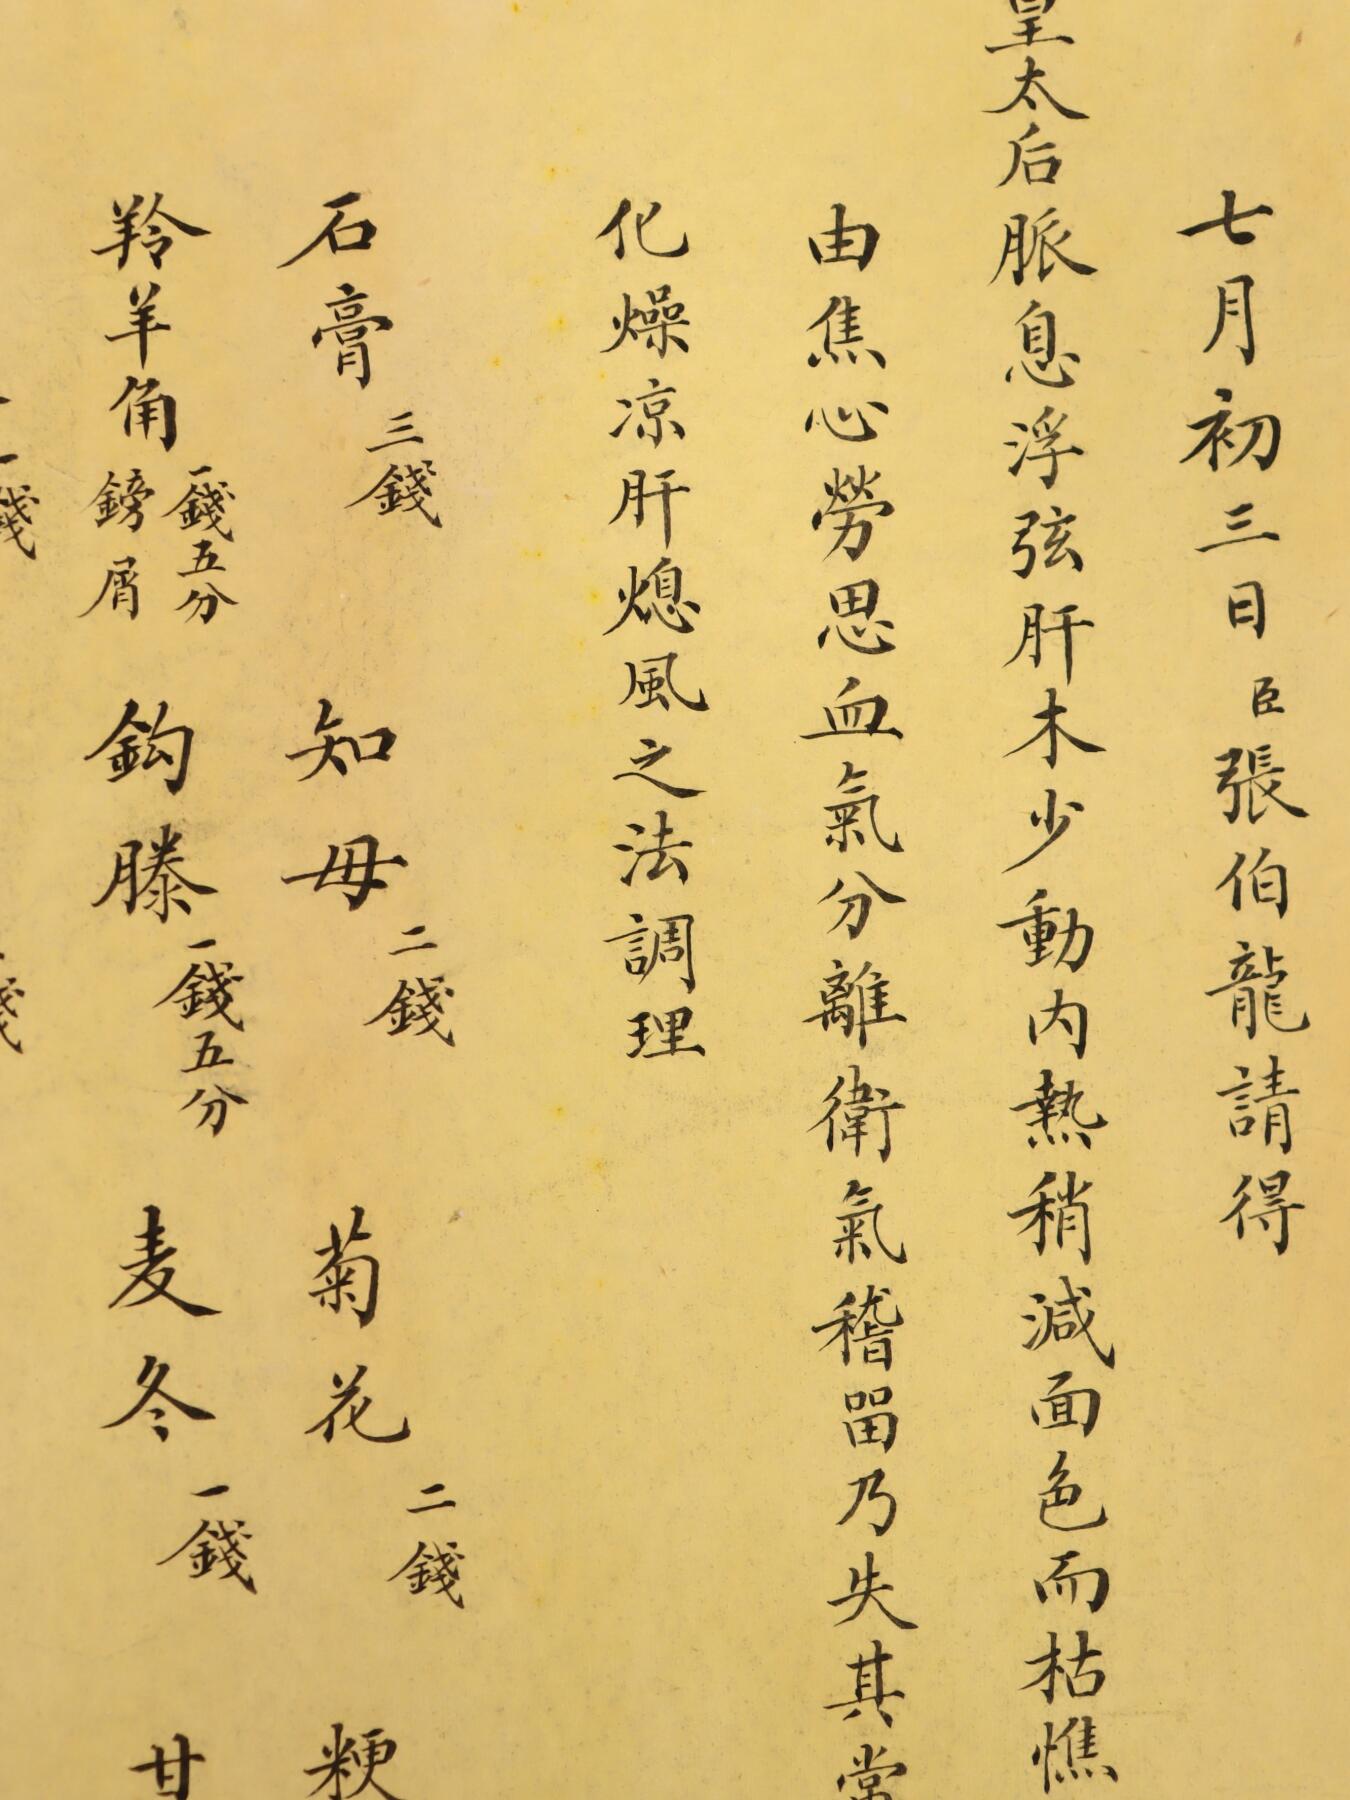 七月初三日臣張伯龍請得
皇太后脈息浮弦肝木少動內熱稍減面色而枯憔
由焦心勞思血氣分離衛氣稽畱乃失其常
化燥凉肝熄風之法調理
石膏三錢 知母二錢 菊花二錢 粳
羚羊角一錢五分鎊屑 鈎藤一錢五分 麦冬一錢 甘